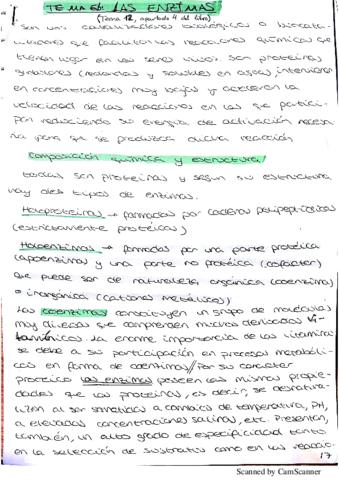 TEMA 6: LAS ENZIMAS
(Tema 12, apartado 4 del libro)
Son unos catalizadores biológicos o biocata-
lizadores que facilitan las reacciones químicas que
tienen lugar en los seres vivos. Son proteínas
globulares y solubles en agua, intervienen
en concentraciones muy bajas y aceleran la
velocidad de las reacciones en las que partici-
pan reduciendo su energía de activación necesa-
ria para que se produzca dicha reacción
Composición química y estructura/
todas son proteínas y según su estructura
hay dos tipos de enzimas.
Holoproteínas → formadas por cadenas polipeptídicas
(estrictamente proteicas)
Holoenzimas → formadas por una parte proteica
(apoenzima) y una parte no proteica (cofactor)
que puede ser de naturaleza orgánica (coenzima)
o inorgánica (cationes metálicos)
Las coenzimas constituyen un grupo de moléculas
muy diversas que comprenden muchos derivados Vi-
tamínicos. La enorme importancia de las vitaminas
se debe a su participación en procesos metabóli-
cos en forma de coenzimas// Por su carácter
proteico las enzimas poseen las mismas propie-
dades que las proteínas, es decir, se desnatura-
lizan al ser sometidas a cambios de temperatura, PH,
a elevadas concentraciones salinas, etc. Presentan,
también, un alto grado de especificidad tanto
en la selección de sustratos como en las reaccio-
17
Scanned by CamScanner